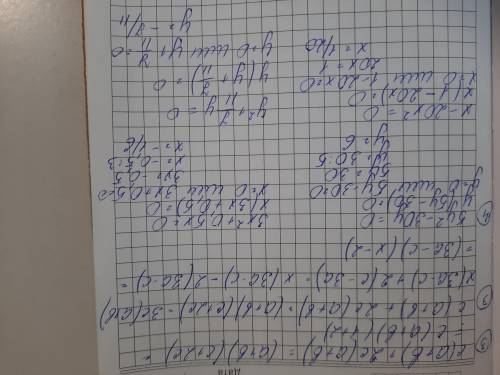 Дата
③ c(a+b)+2c(a+b) = (a+b)(c+2c) =
= c(a+b)(1+2)
③ c(a+b)+2c(a+b)=(a+b)(c+2c)=3c(a+b)
x(3a-c)+2(c-3a)=x(3a-c)-2(3a-c)=
=(3a-c)(x-2)
④ 5y²-30y=0
y(5y-30)=0
y=0 или 5y-30=0
5y=30
y=30:5
y=6
3x²+0,5x=0
x(3x+0,5)=0
x=0 или 3x+0,5=0
3x=-0,5
x=-0,5:3
x=-1/6
x-20x²=0
x(1-20x)=0
x=0 или 1-20x=0
20x=1
x=1/20
y²+7/11y=0
y(y+7/11)=0
y=0 или y+7/11=0
y=-7/11